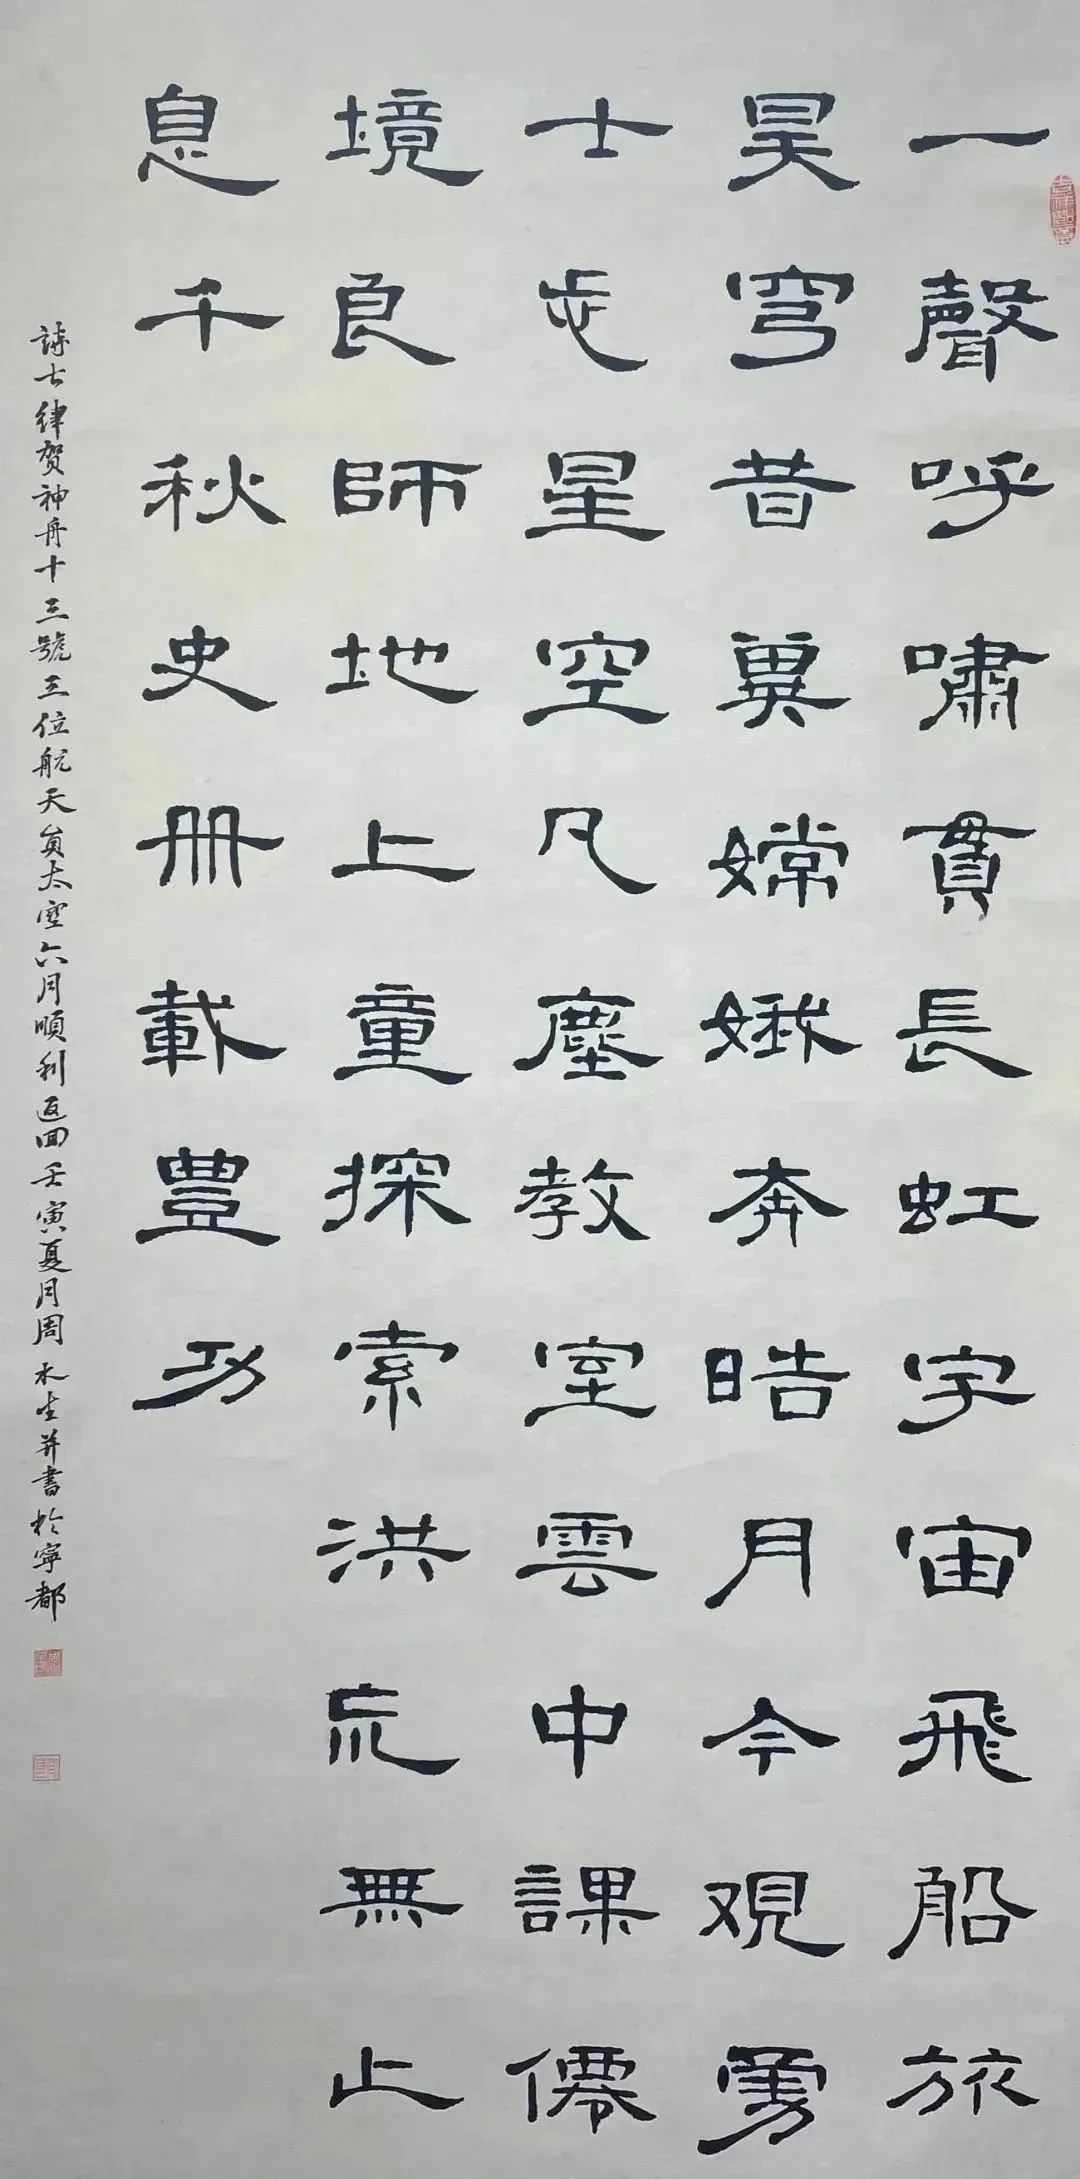 一聲呼嘯貫長虹宇宙飛船旅
昊穹昔冀嫦娥奔皓月今覌勇
士步星空凡塵教室雲中課僊
境良師地上童探索洪荒無止
息千秋史冊載豊功
詩七律贺神舟十三號三位航天員太空六月順利返回壬寅夏月周木生并書於寧都